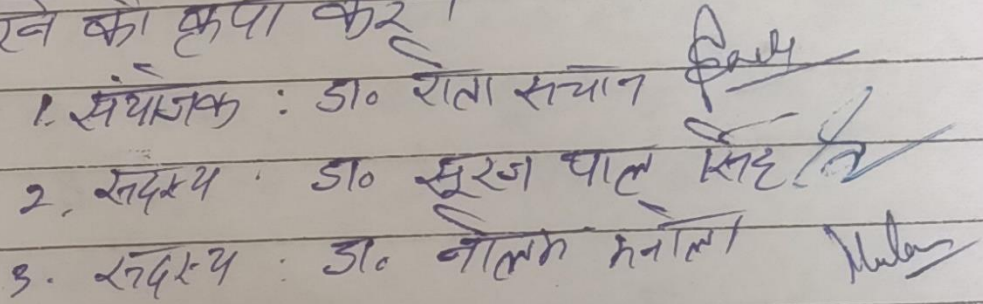 रने की कृपा करें।
1. संयोजक : डा० रीता सचान
2. सदस्य : डा० सूरज पाल सिंह
3. सदस्य : डा० नीलम मनोला